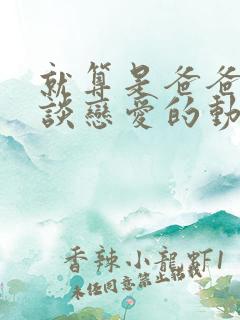 就算是爸爸
談戀愛的動
香辣小龍虾1
未经同意禁止转载